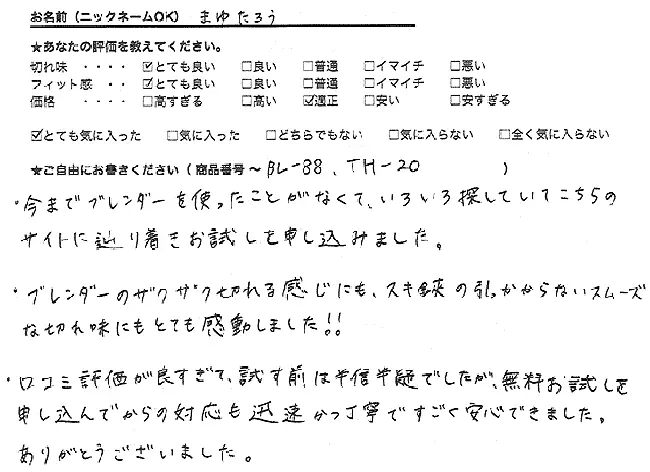 お名前（ニックネームOK） まゆたろう
★あなたの評価を教えてください。
切れ味 ・・・・ ☑とても良い □良い □普通 □イマイチ □悪い
フィット感 ・・ ☑とても良い □良い □普通 □イマイチ □悪い
価格 ・・・・ □高すぎる □高い ☑適正 □安い □安すぎる
☑とても気に入った □気に入った □どちらでもない □気に入らない □全く気に入らない
★ご自由にお書きください（商品番号〜BL-88、TH-20 ）
・今までブレンダーを使ったことがなくて、いろいろ探していてこちらの
サイトに辿り着きお試しを申し込みました。
・ブレンダーのザクザク切れる感じにも、スキ鋏の引っかからないスムーズ
な切れ味にもとても感動しました!!
・口コミ評価が良すぎて、試す前は半信半疑でしたが、無料お試しを
申し込んでからの対応も迅速かつ丁寧ですごく安心できました。
ありがとうございました。